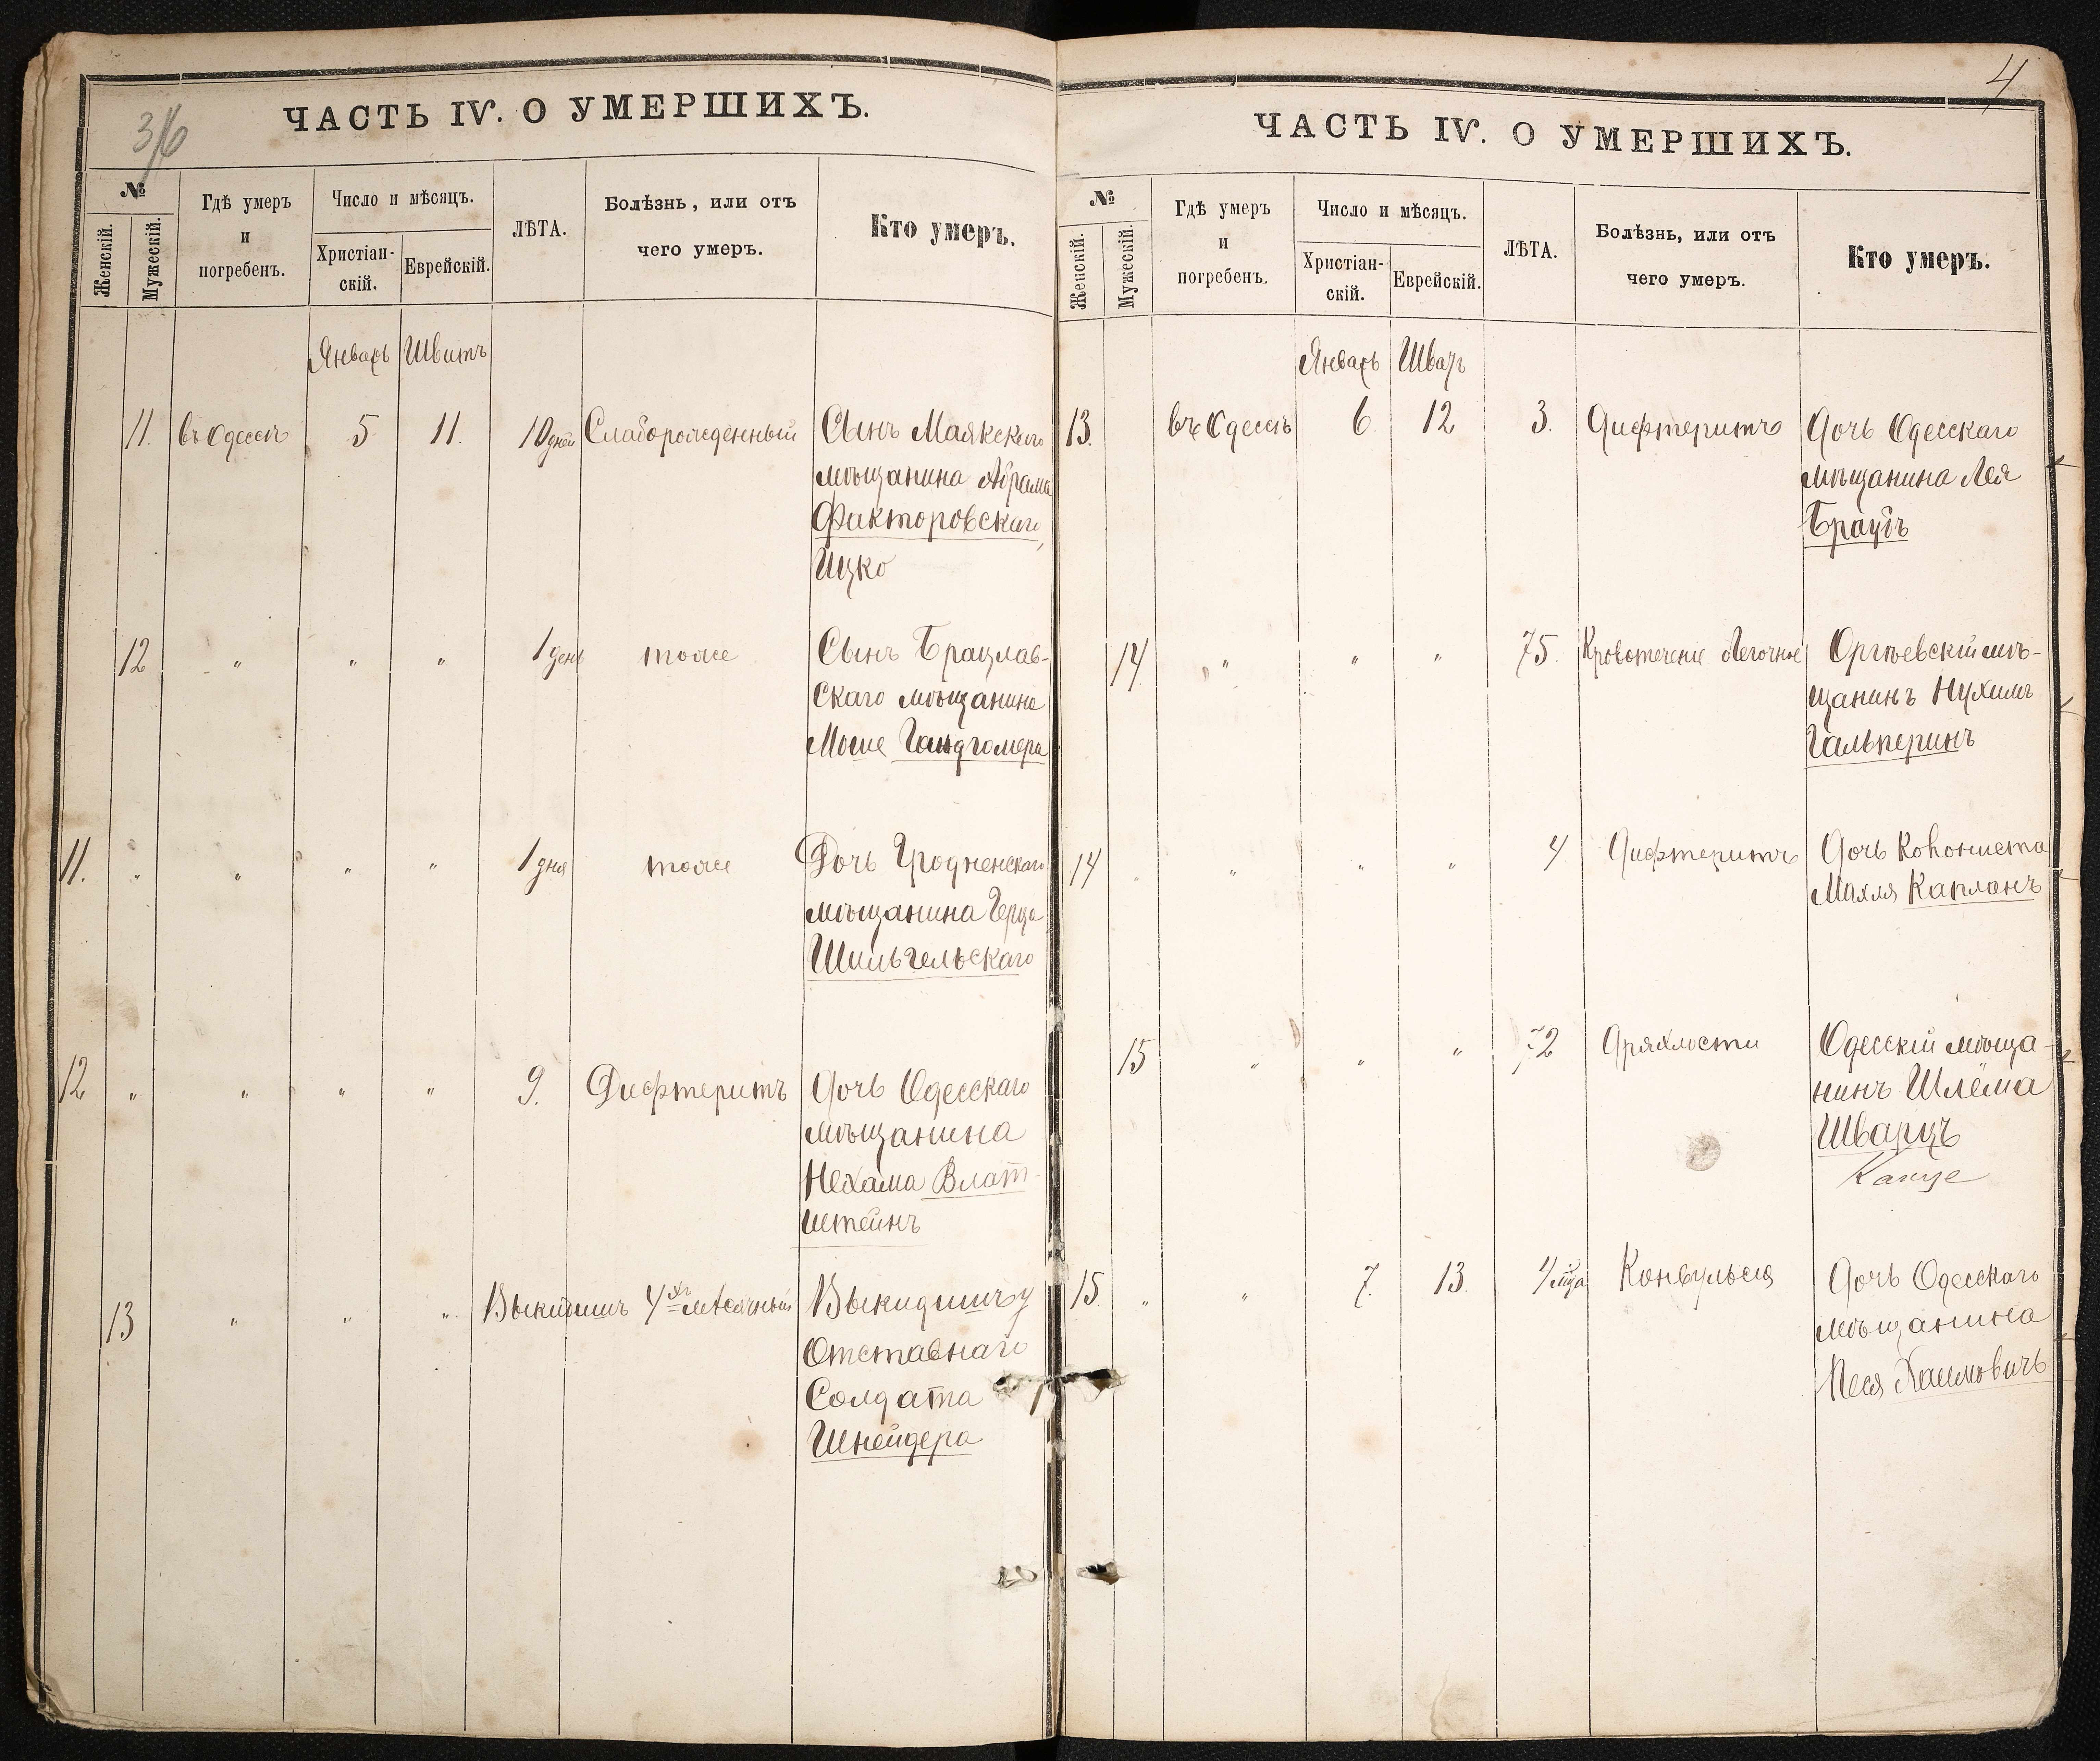 3/6
ЧАСТЬ IV. О УМЕРШИХЪ.
№
Женскій.
Мужескій.
Гдѣ умеръ
и
погребенъ.
Число и мѣсяцъ.
Христіан-
скій.
Еврейскій.
ЛѢТА.
Болѣзнь, или отъ
чего умеръ.
Кто умеръ.
Январь Швитъ
11. въ Одессѣ 5 11. 10 дней Слаборожденный Сынъ Маякскаго
мѣщанина Абрама
Факторовскаго,
Ицко
12 " " " 1 день тоже Сынъ Брацлав-
скаго мѣщанина
Моше Гандгомера
11. " " " " 1 дня тоже Дочь Гродненскаго
мѣщанина Герца
Шильгельскаго
12 " " " " 9. Дифтеритъ Дочь Одесскаго
мѣщанина
Нехама Влат-
штейнъ
13 " " " Выкидишъ 4хъ мѣсячный Выкидишъ у
Отставнаго
Солдата
Шнейдера
4
ЧАСТЬ IV. О УМЕРШИХЪ.
№
Женскій.
Мужескій.
Гдѣ умеръ
и
погребенъ.
Число и мѣсяцъ.
Христіан-
скій.
Еврейскій.
ЛѢТА.
Болѣзнь, или отъ
чего умеръ.
Кто умеръ.
Январь Шват
13. въ Одессѣ 6 12 3. Дифтеритъ Дочь Одесскаго
мѣщанина Лея
Враугъ
14 " " " 75. Кровотеченіе Легочное Оргѣевскій мѣ-
щанинъ Нухимъ
Гальперинъ
14 " " " " 4 Дифтеритъ Дочь Колониста
Махля Капланъ
15 " " " 72 Дряхлости Одесскій мѣща-
нинъ Шлёма
Шварцъ
15 " " 7. 13. 4 мца Конвульсія Дочь Одесскаго
мѣщанина
Песя Хаимовичъ